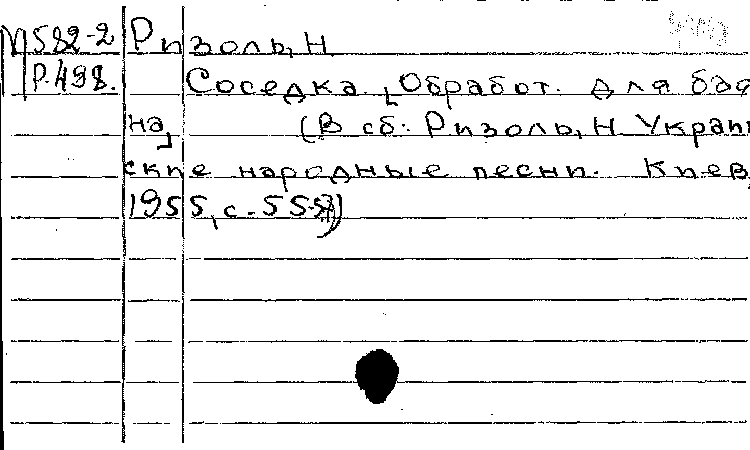 М582-2 Ризоль, Н
Р.498. Соседка. [Обработ. для бая
на] (В сб: Ризоль, Н Украин
ские народные песни. Киев,
1955, с.